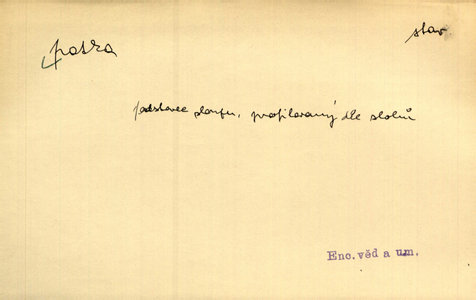 patka
stav
podstavec sloupu, profilovaný dle slohů
Enc. věd a um.